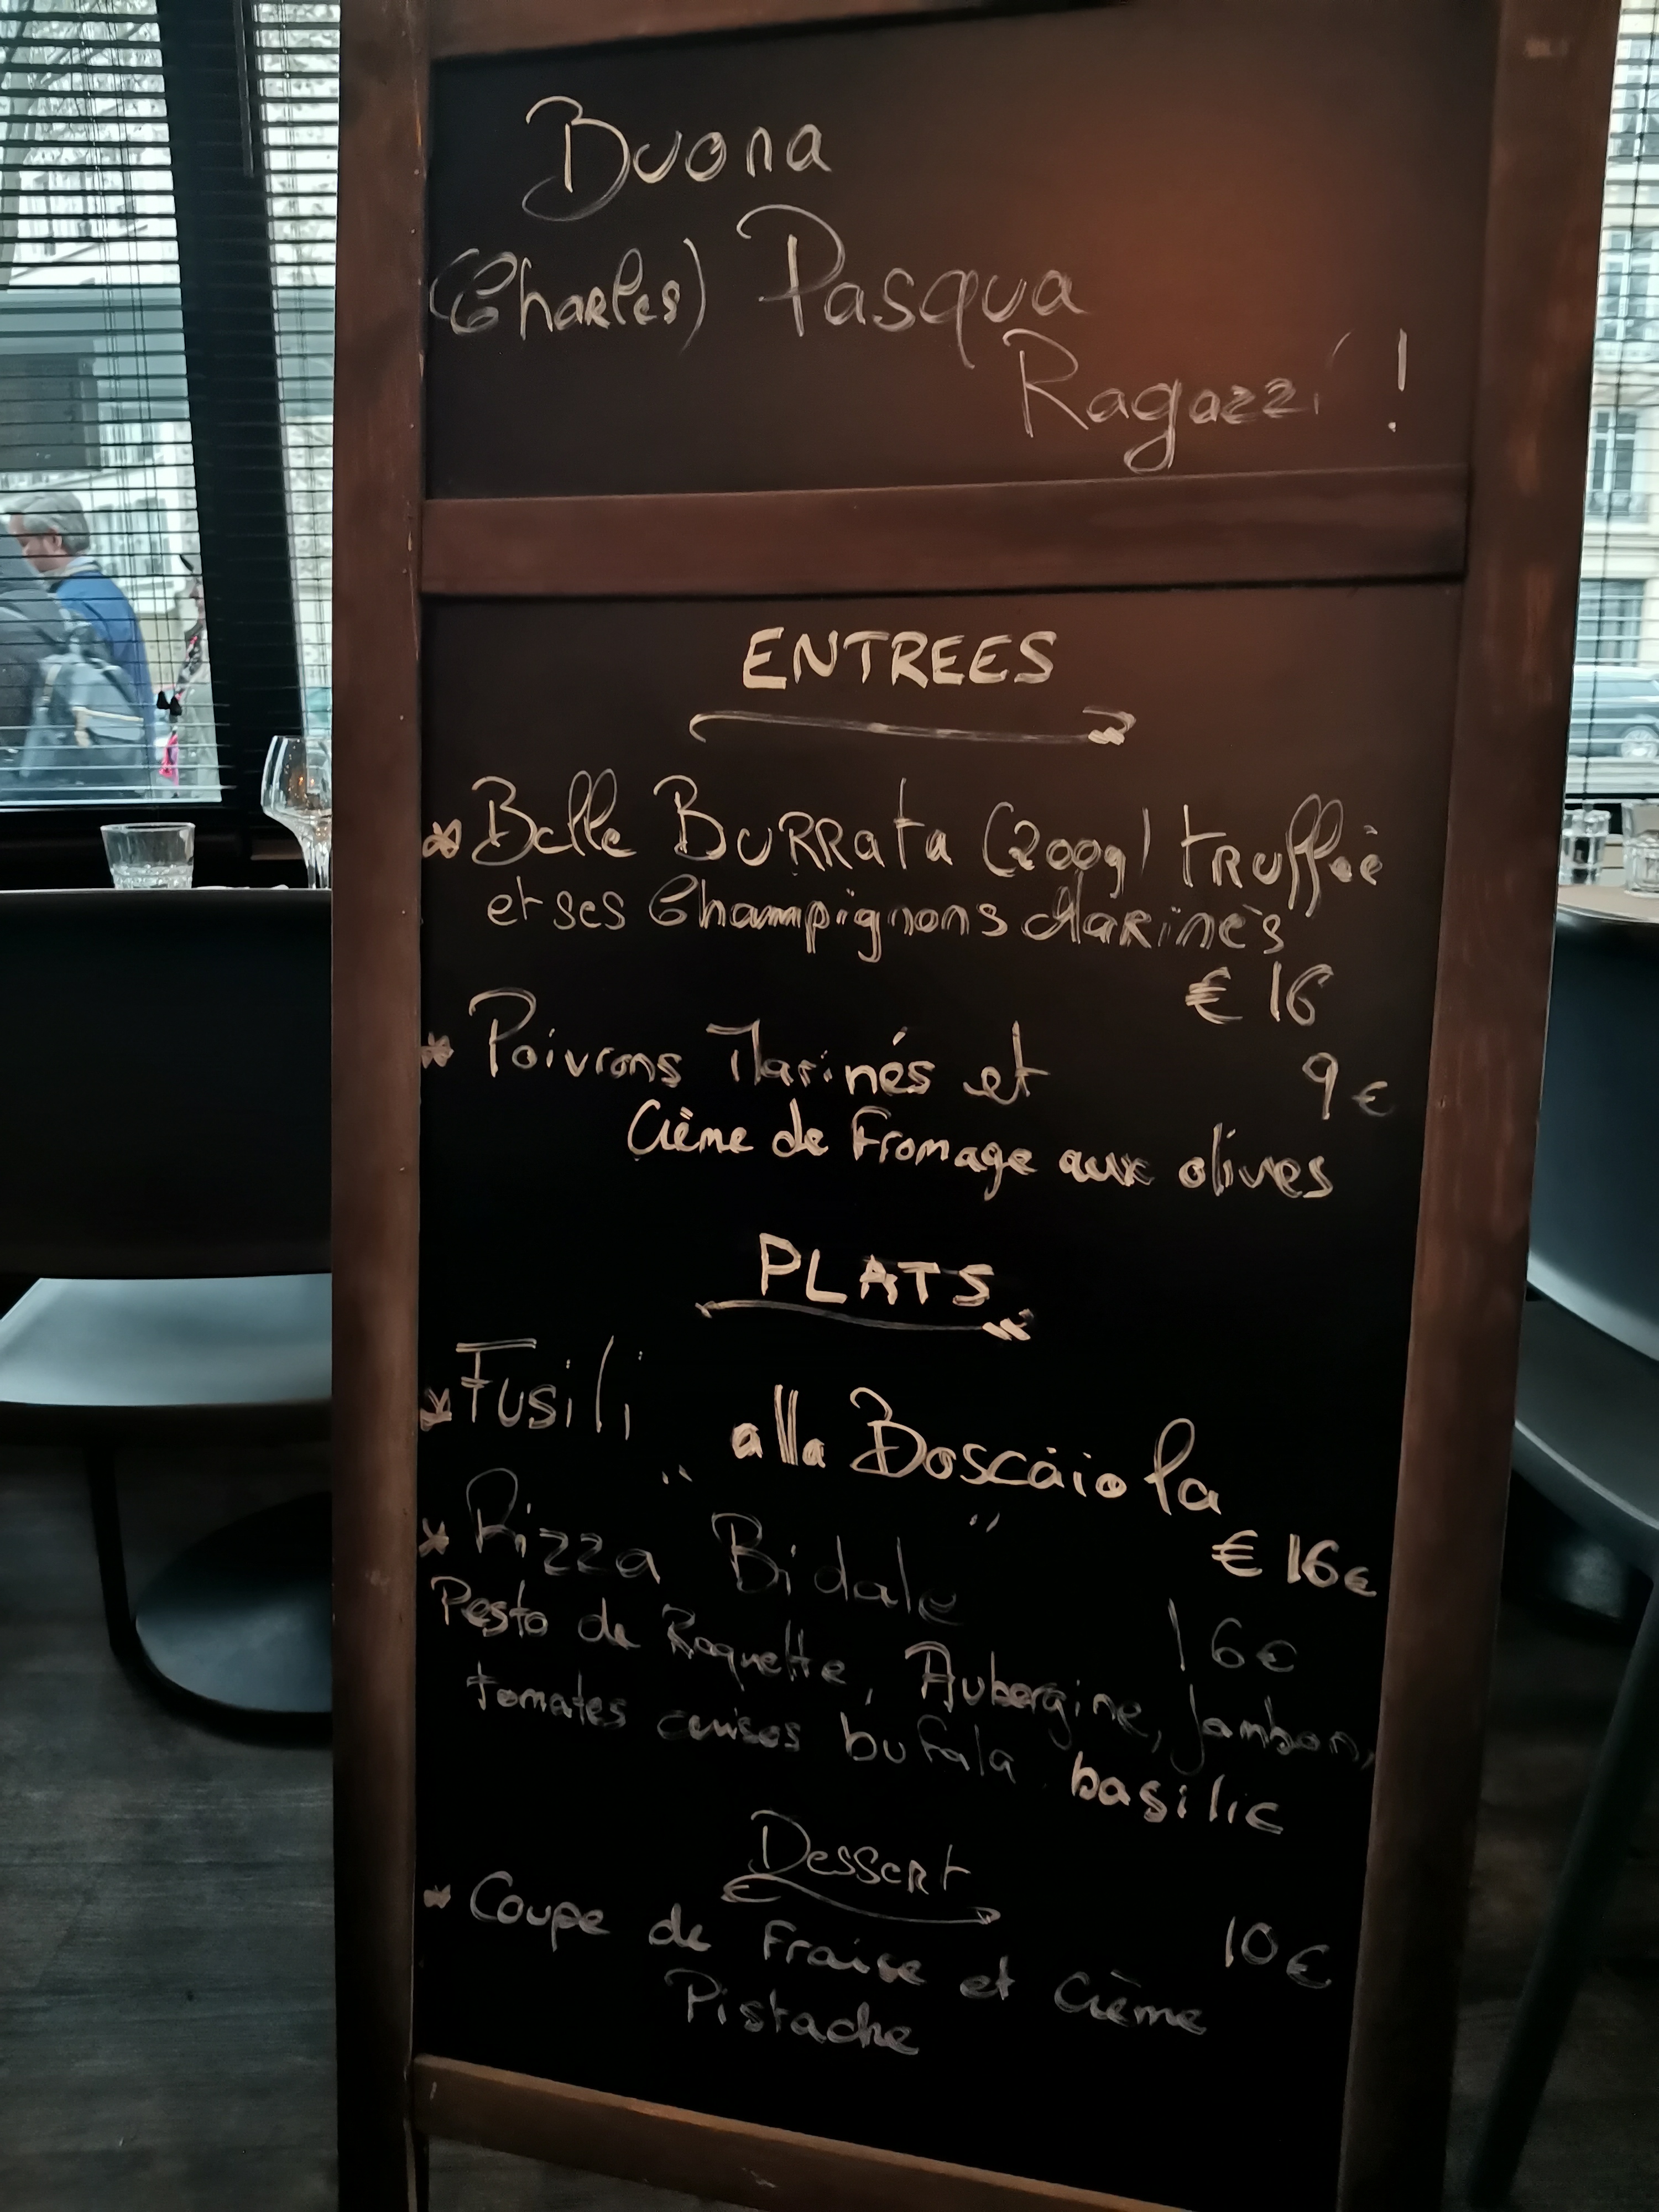 Buona
(Charles) Pasqua
Ragazzi !
ENTREES
* Belle Burrata (200g) truffée
et ses Champignons Marinés
€ 16
* Poivrons Marinés et 9€
Crème de Fromage aux olives
PLATS
* Fusili alla Boscaiola
€ 16€
* Pizza "Bidale"
16€
Pesto de Roquette, Aubergine, Jambon,
tomates cerises bufala basilic
Dessert
* Coupe de Fraise et Crème 10€
Pistache